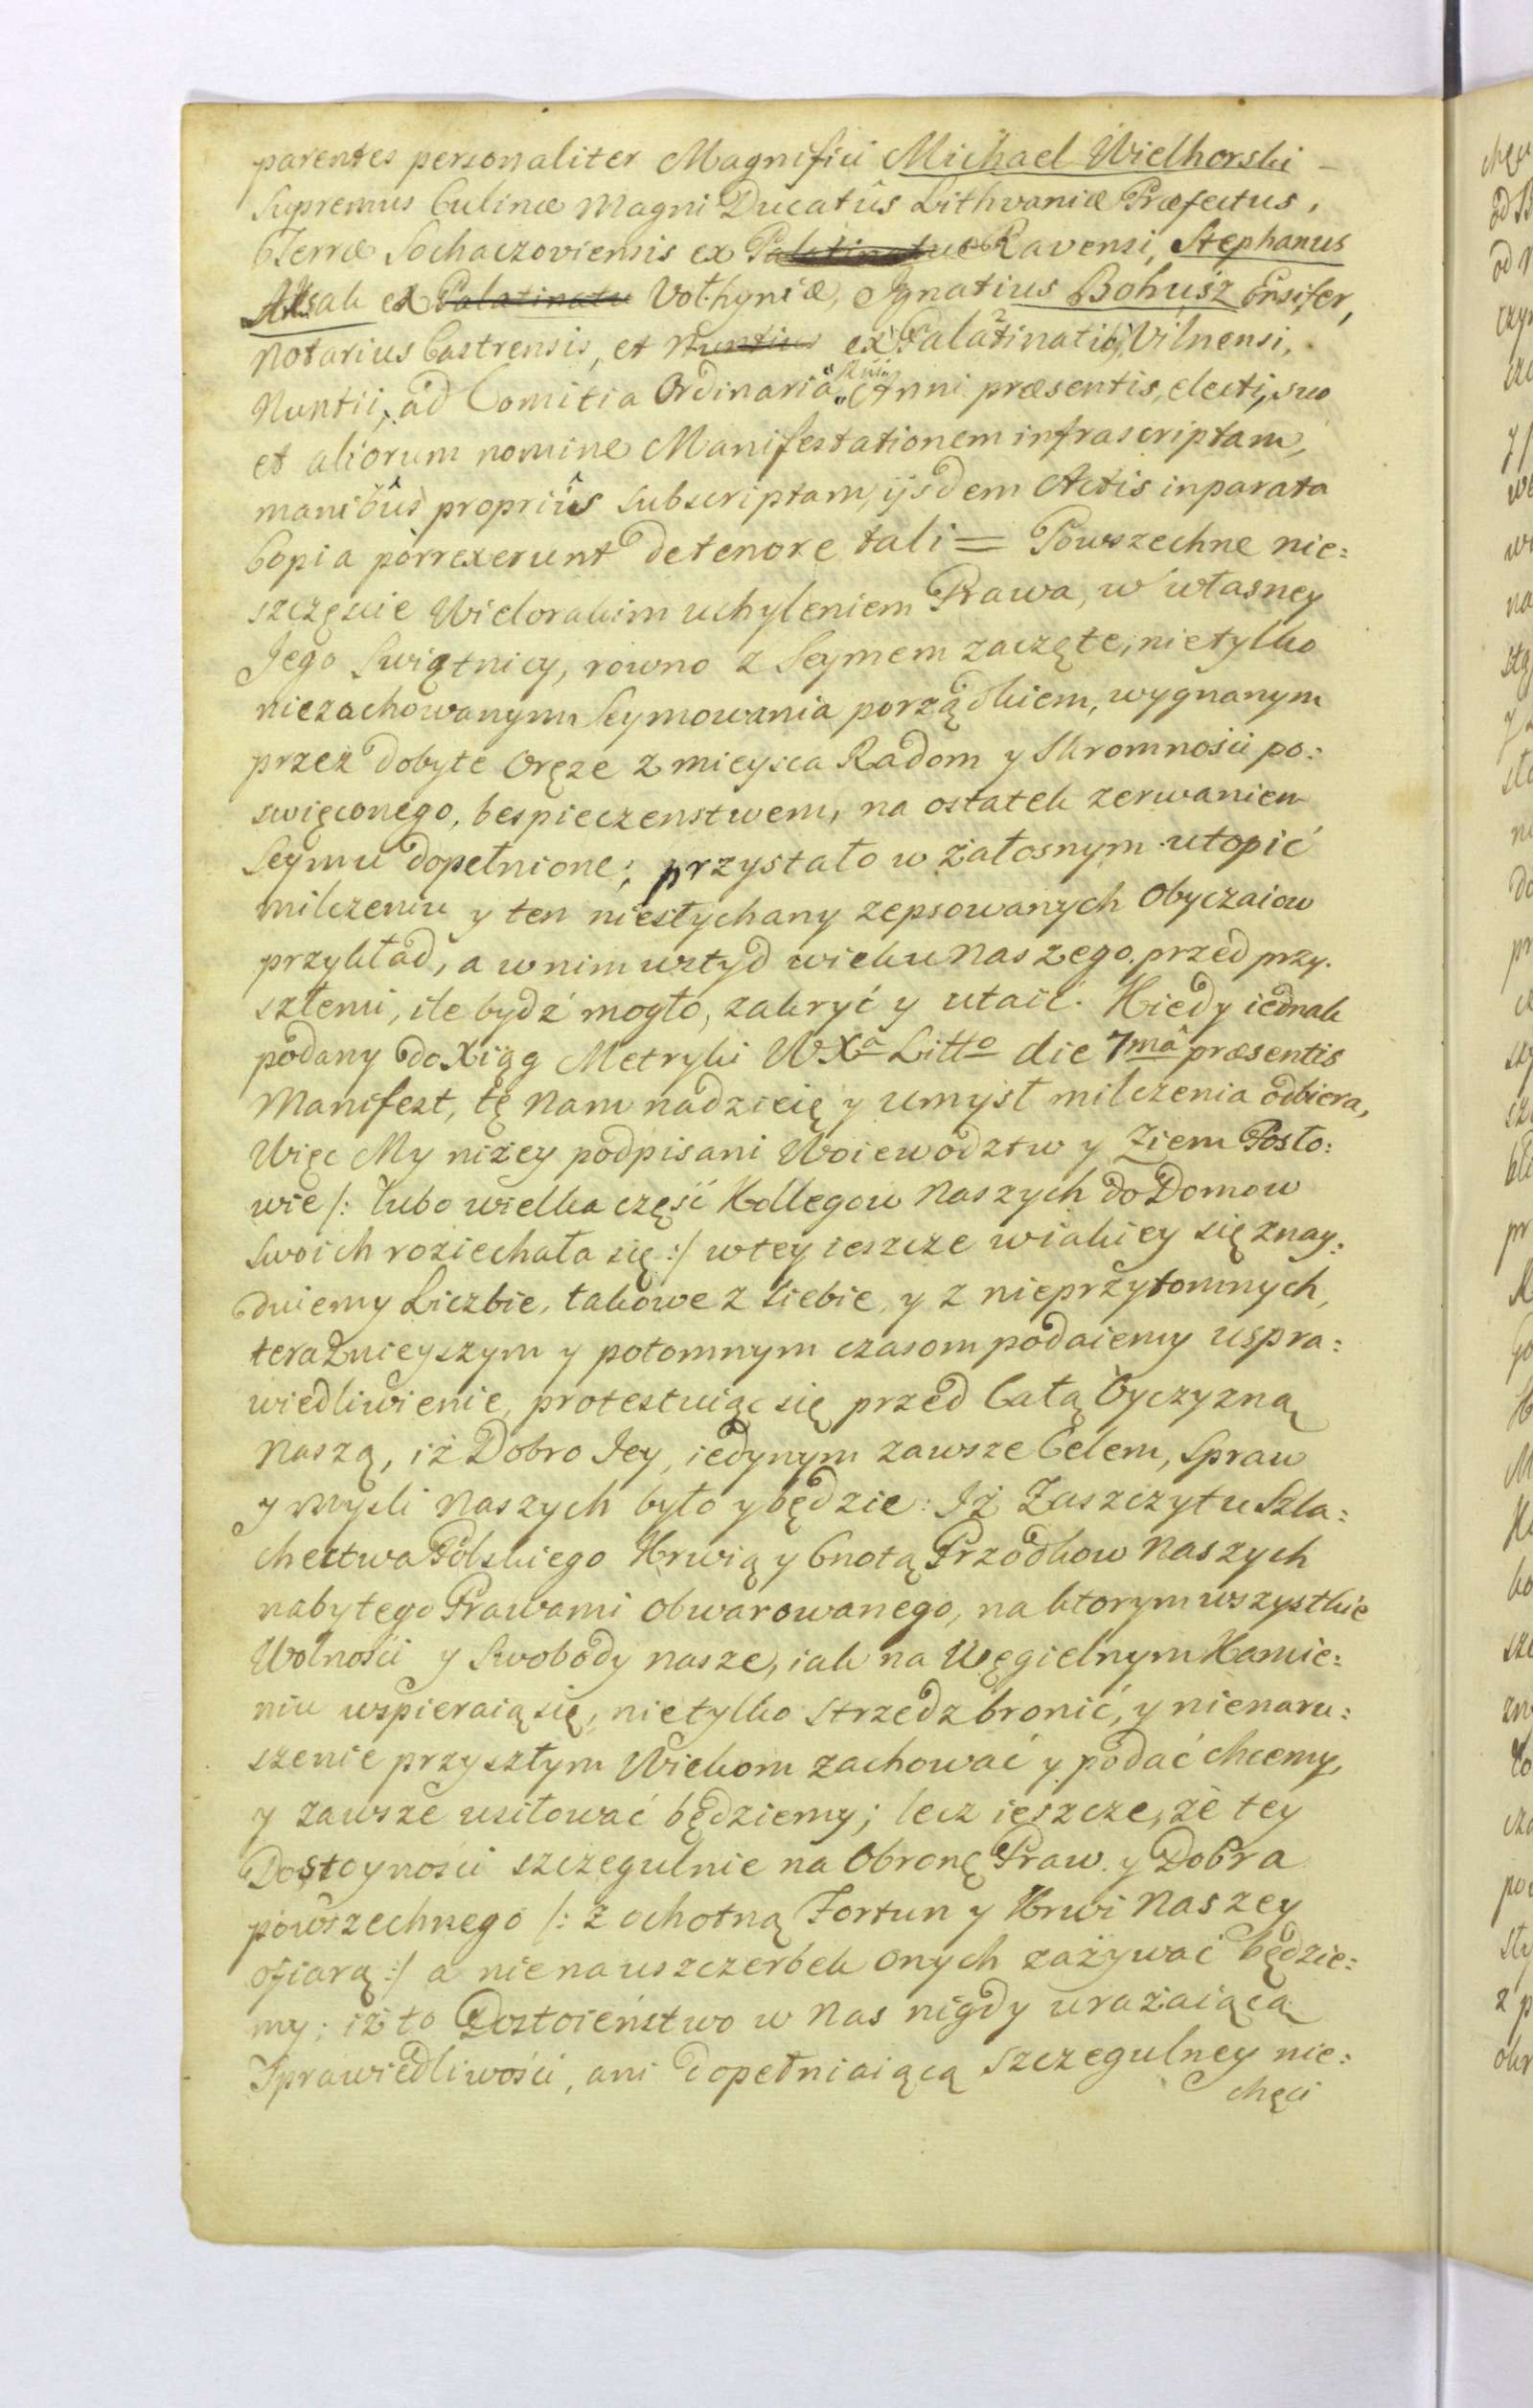 parentes personaliter Magnifici Michael Wielhorski
Supremus Culinæ Magni Ducatûs Lithvaniæ Præfectus,
Terræ Sochaczoviensis ex Palatinatu Ravensi, Stephanus
ex Palatinatu Vołhyniæ, Ignatius Bohusz Ensifer,
Notarius Castrensis, et Nuntius ex Palatinatib9 Vilnensi,
Nuntii, ad Comitia Ordinaria Anni præsentis, electi, suo
et aliorum nomine Manifestationem infrascriptam,
manibûs propriîs subscriptam, ijsdem Actis in parata
Copia porrexerunt de tenore tali = Powszechne nie:
szczęscie Wielorakim uchyleniem Prawa, w własney
Jego Swiątnicy, rowno z Seymem zaczęte, nietylko
niezachowanym Seymowania porządkiem, wygnanym
przez dobyte Oręże z mieysca Radom y Skromności po:
swięconego, bespieczenstwem, na ostatek zerwaniem
Seymu dopełnione; przystało w żałosnym utopić
milczeniu y ten niesłychany zepsowanych Obyczaiow
przykład, a w nim wstyd wieku Naszego przed przy.
szłemi, ile bydź mogło, zakryć y utaić. Kiedy iednak
podany do Xiąg Metryki WXa Litto die 7mâ præsentis
Manifest, tę Nam nadzieię y umysł milczenia odbiera,
Więc My niżey podpisani Woiewodztw y Ziem Posło:
wie /: lubo wielka część Kollegow Naszych do Domow
Swoich roziechała się :/ w tey ieszcze w iakiey się znay:
duiemy Liczbie, takowe z siebie, y z nieprzytomnych,
teraźnieyszym y potomnym czasom podaiemy uspra:
wiedliwienie, protestuiąc się przed Całą Oyczyzną
Naszą, iż Dobro Jey, iedynym zawsze Celem, Spraw
y Mysli Naszych było y będzie: Iż Zaszczytu Szla:
chectwa Polskiego Krwią y Cnotą Przodkow Naszych
nabytego Prawami obwarowanego, na ktorym wszystkie
Wolności y Swobody nasze, iak na Węgielnym Kamie:
niu wspieraią się, nietylko strzedz bronić, y nienaru:
szenie przyszłym Wiekom zachować y podać chcemy,
y zawsze usiłować będziemy; lecz ieszcze, że tey
Dostoyności szczegulnie na Obronę Praw y Dobra
powszechnego /: z ochotną Fortun y Krwi Naszey
ofiarą :/ a nie na uszczerbek onych zażywać będzie:
my; iż to Dostoieństwo w Nas nigdy urażaiącą
Sprawiedliwości, ani dopełniaiącą szczegulney nie:
chęci